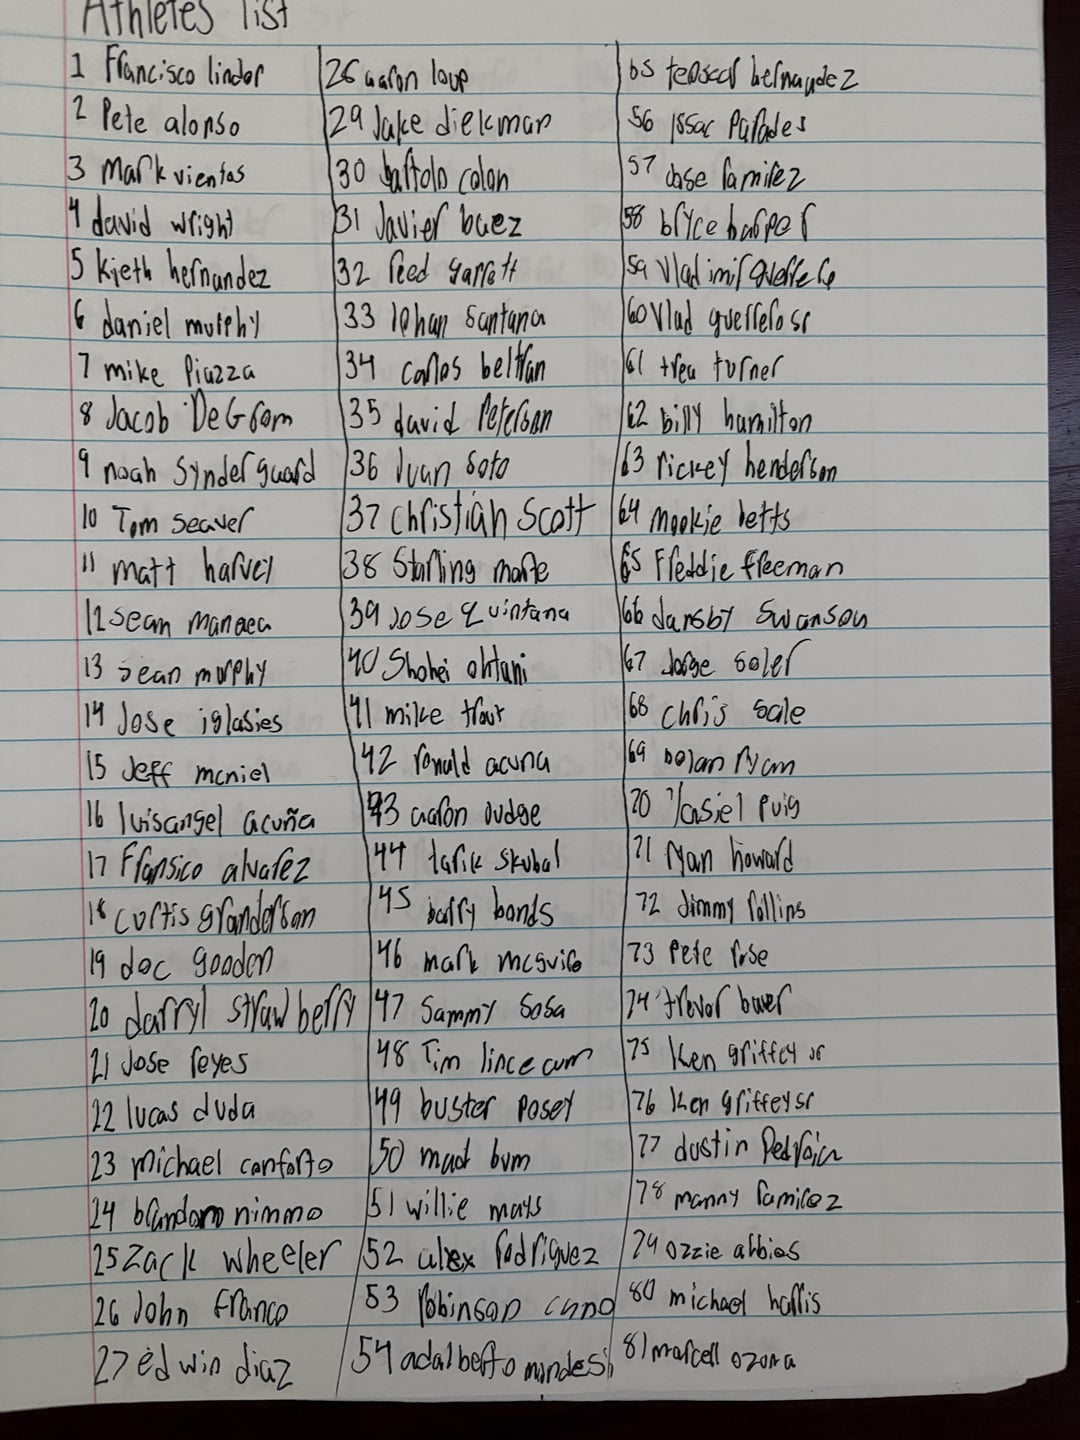 Athletes list
1 Francisco lindor
2 Pete alonso
3 Mark vientos
4 david wright
5 kieth hernandez
6 daniel murphy
7 mike Piazza
8 Jacob DeGrom
9 noah Synderguard
10 Tom seaver
11 matt harvey
12 sean manaea
13 sean murphy
14 Jose iglasies
15 Jeff mcniel
16 luisangel acuña
17 Fransico alvarez
18 curtis granderson
19 doc gooden
20 darryl strawberry
21 Jose reyes
22 lucas duda
23 michael conforto
24 brandon nimmo
25 Zack wheeler
26 John franco
27 edwin diaz
26 aaron loup
29 Jake diekman
30 bartolo colon
31 Javier baez
32 reed garrett
33 Johan santana
34 carlos beltran
35 david Peterson
36 Juan soto
37 Christian Scott
38 Starling marte
39 Jose quintana
40 Shohei ohtani
41 mike trout
42 ronald acuna
43 aaron Judge
44 tarik skubal
45 barry bonds
46 mark mcguire
47 Sammy Sosa
48 Tim lincecum
49 buster posey
50 mad bum
51 willie mays
52 alex rodriguez
53 robinson cano
54 adalberto mondesi
55 bernaydez
56 Issac Parades
57 Jose ramirez
58 bryce harper
59 Vladimir
60 Vlad guerrero sr
61 trea turner
62 billy hamilton
63 rickey henderson
64 mookie betts
65 Freddie freeman
66 dansby Swanson
67 Jorge soler
68 chris sale
69 nolan Ryan
70 Yasiel Puig
71 Ryan howard
72 Jimmy rollins
73 Pete rose
74 trevor bauer
75 ken griffey jr
76 ken griffey sr
77 dustin Pedroia
78 manny ramirez
79 ozzie albies
80 michael harris
81 marcell ozona